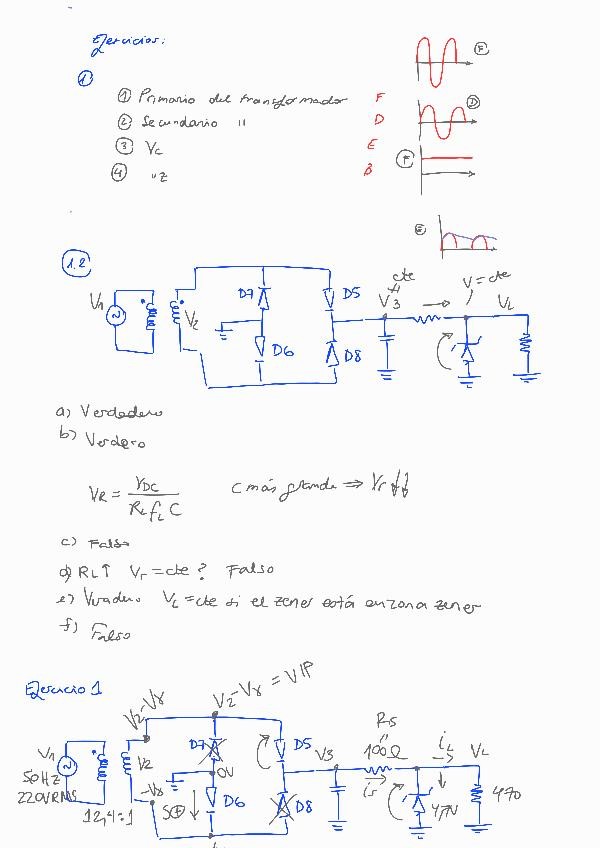 Ejercicios:
①
① Primario del transformador F
② Secundario " D
③ Vc E
④ "z B
F
D
F
E
1.2
V1
V2
D7
D5
D6
D8
V3
cte
V=cte
VL
a) Verdadero
b) Verdero
VR = VDC / RL fL C C más grande ⇒ Vr ↓↓
c) Falso
d) RL↑ Vr = cte? Falso
e) Vradero VL = cte si el zener está en zona zener
f) Falso
Ejercicio 1
V2-Vγ
V2-Vγ = VIP
V1
50Hz
220VRMS
12,4:1
V2
-Vγ
D7
0V
D5
D6
D8
V3
Rs
100Ω
is
iL
VL
47V
470